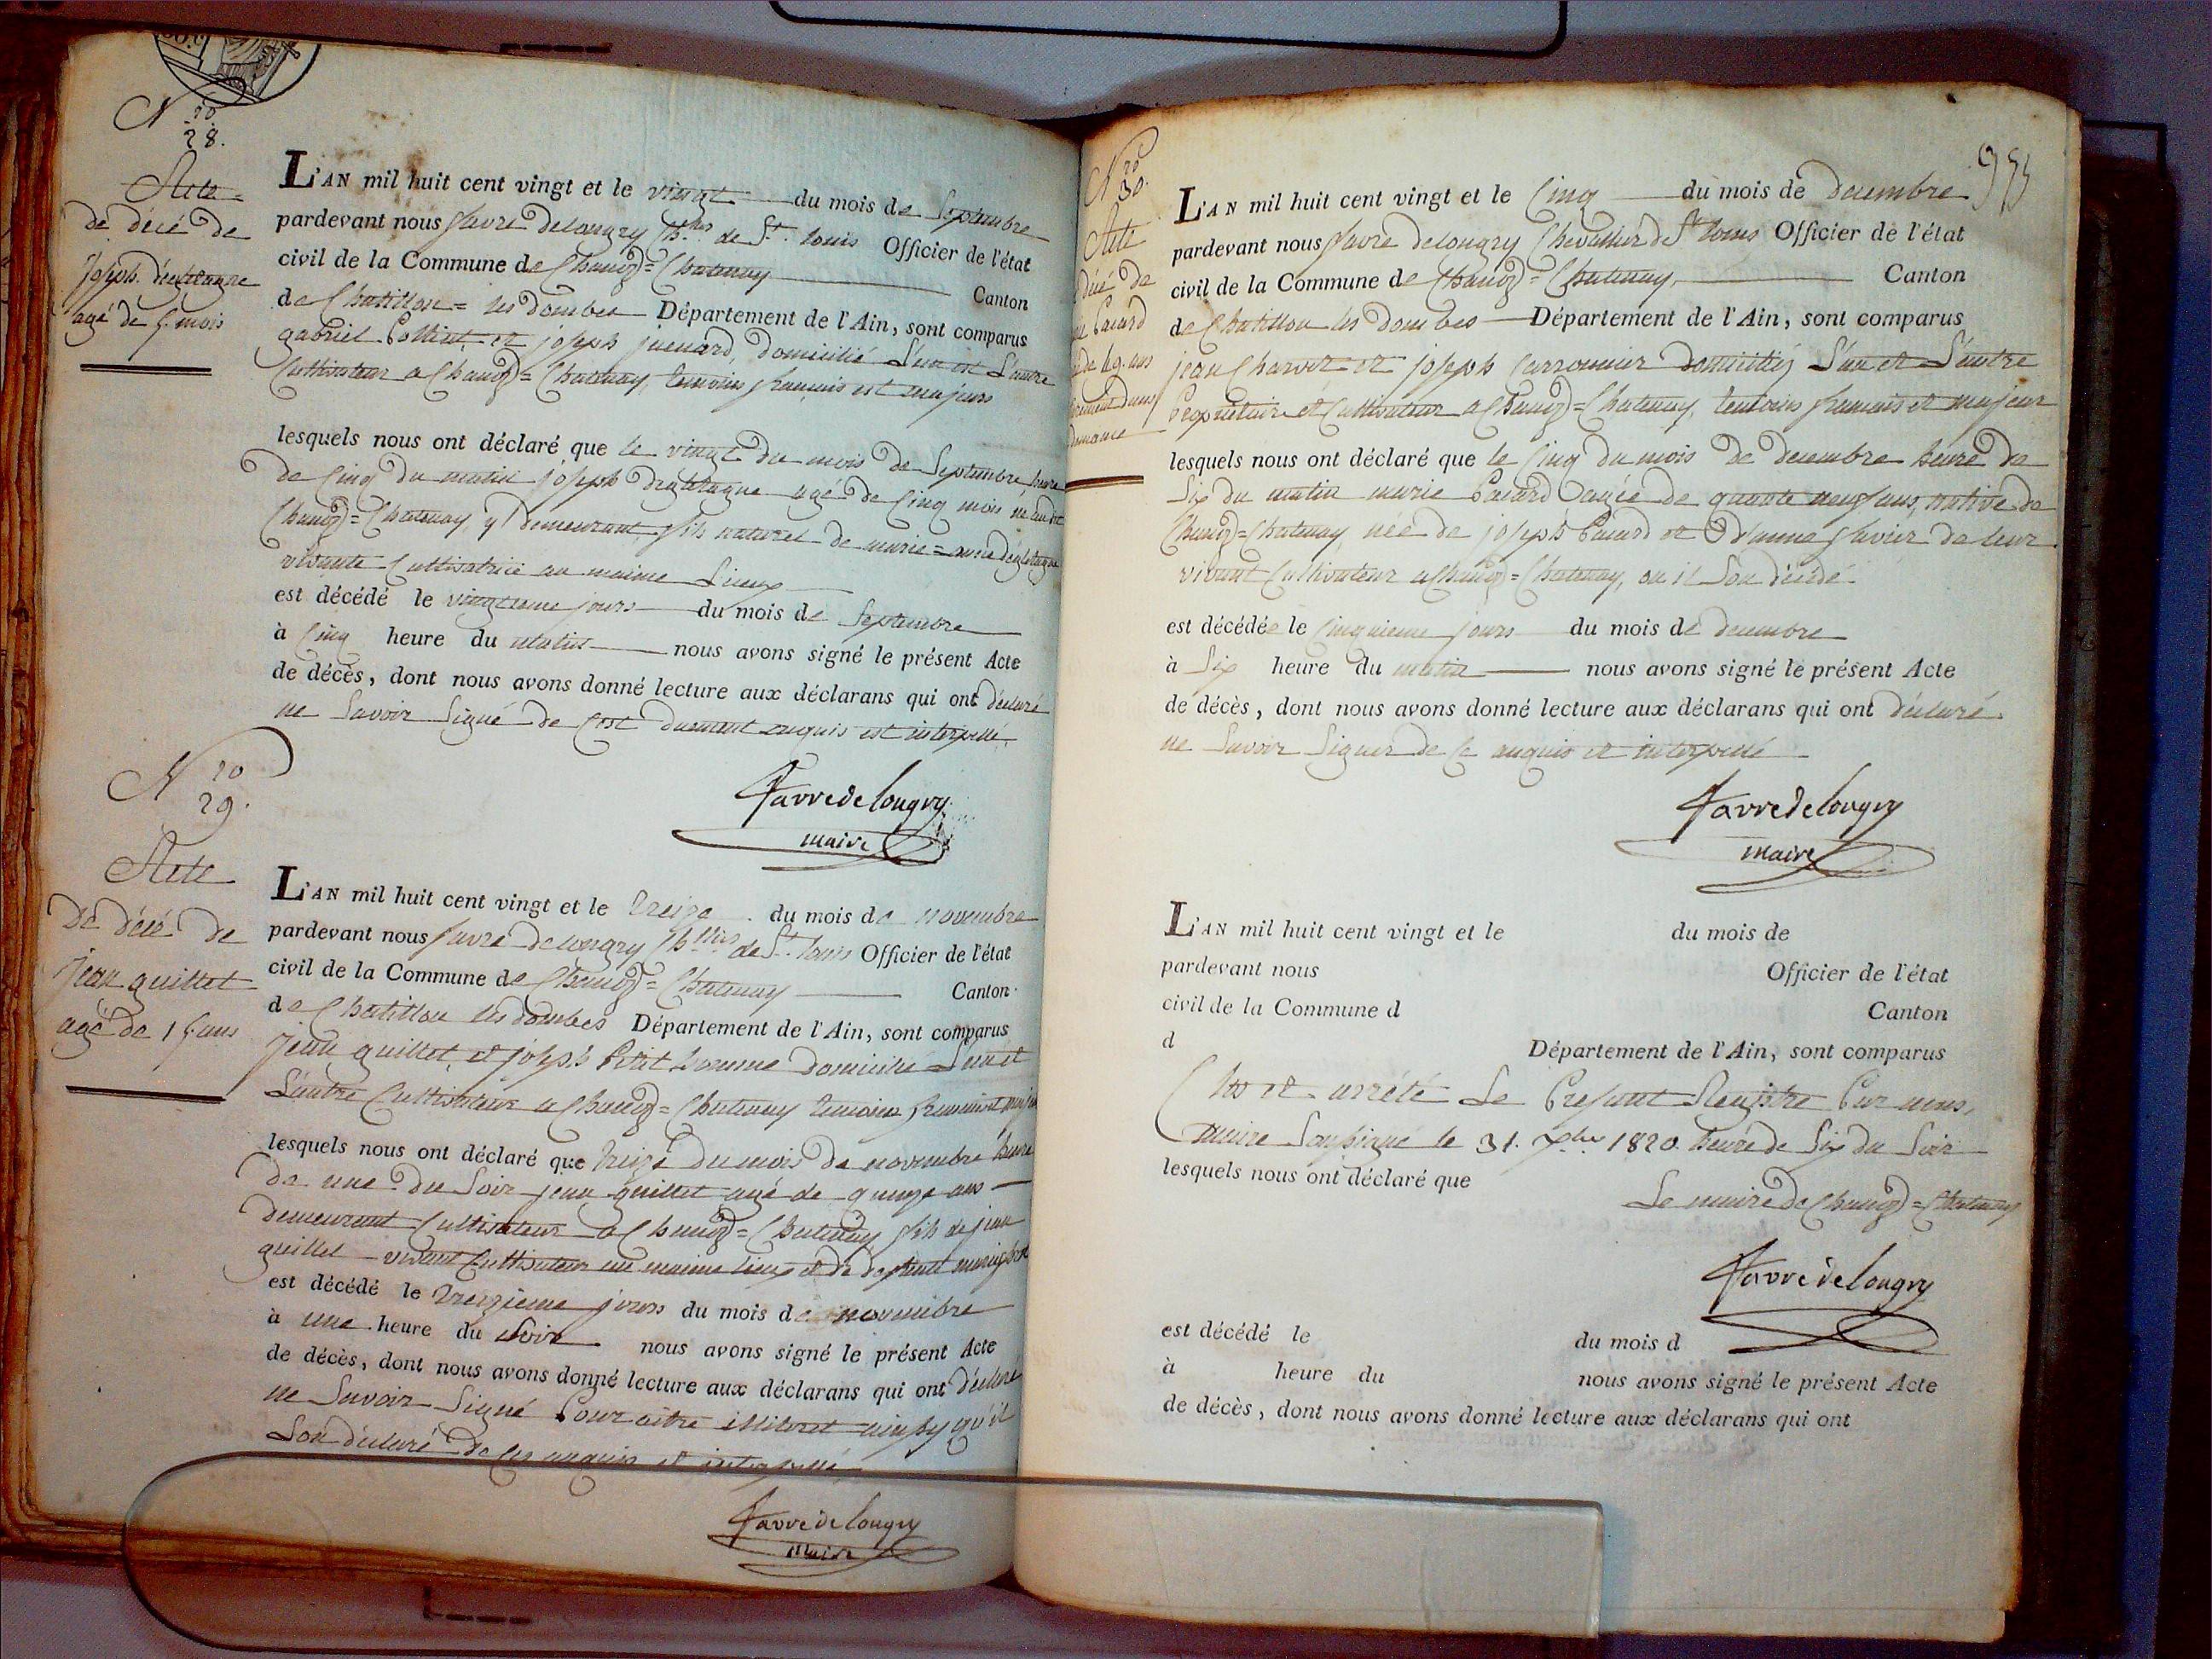 N.ro
28.
Acte
de décé de
joseph
agé de 5. mois
L'AN mil huit cent vingt et le vingt du mois de Septembre
pardevant nous favre delongry Ch.lier de S.t louis Officier de l'état
civil de la Commune de Chanoz=Chatenay Canton
de Chatillon=les dombes Département de l'Ain, sont comparus
gabriel Collint et joseph juenard, domicilié L'un et L'autre
Cultivateur a Chanoz=Chatenay, temoins français est majeurs
lesquels nous ont déclaré que le vingt du mois de Septembre, heure
de Cinq du matin joseph agé de Cinq mois né audit
Chanoz=Chatenay y demeurant fils naturel de marie=
vivante Cultivatrice au maime Lieux
est décédé le vingtieme jours du mois de Septembre
à Cinq heure du matin nous avons signé le présent Acte
de décès, dont nous avons donné lecture aux déclarans qui ont déclaré
ne Savoir Signé de Cest dument enquis est interpellé
favre de longry
maire
N.ro
29.
Acte
De décé de
jean guillet
agé de 15. ans
L'AN mil huit cent vingt et le treize du mois de novembre
pardevant nous favre delongry Ch.lier de S.t louis Officier de l'état
civil de la Commune de Chanoz=Chatenay Canton
de Chatillon les dombes Département de l'Ain, sont comparus
jean guillet, et joseph Petit homme Domicilié L'un et
L'autre Cultivateur a Chanoz=Chatenay temoins français et
lesquels nous ont déclaré que treize du mois de novembre heure
de une du Soir jean guillet agé de quinze ans
demeurant Cultivateur a Chanoz=Chatenay fils de jean
guillet vivant Cultivateur au maime lieux et de
est décédé le treizieme jours du mois de novembre
à une heure du Soir nous avons signé le présent Acte
de décès, dont nous avons donné lecture aux déclarans qui ont déclaré
ne Savoir Signé Pour aitre illiteret ainsy qu'il
Son déclaré de ces enquis et interpellé
favre de longry
maire
N.ro
30.
Acte
décé de
Paiard
de 49. ans
L'AN mil huit cent vingt et le Cinq du mois de decembre
pardevant nous favre delongry Chevallier de S.t louis Officier de l'état
civil de la Commune de Chanoz=Chatenay, Canton
de Chatillon les dombes Département de l'Ain, sont comparus
jean Charvet et joseph Carronnier domiciliés L'un et L'autre
Propriétaire et Cultivateur a Chanoz=Chatenay, temoins français et majeur
lesquels nous ont déclaré que le Cinq du mois de decembre heure de
Six du matin marie Paiard agée de quarante neuf ans, native de
Chanoz=Chatenay née de joseph Paiard et D'anne favier de leur
vivant Cultivateur a Chanoz=Chatenay, ou il Son décédé
est décédée le Cinquieme jours du mois de decembre
à Six heure du matin nous avons signé le présent Acte
de décès, dont nous avons donné lecture aux déclarans qui ont déclaré
ne Savoir Signer de Ce enquis et interpellé
favre de longry
maire
L'AN mil huit cent vingt et le du mois de
pardevant nous Officier de l'état
civil de la Commune d Canton
d Département de l'Ain, sont comparus
Clos et arrété Le Present Registre Par nous,
maire Soussigné le 31. Xbre 1820. heure de Six du Soir
lesquels nous ont déclaré que
Le maire de Chanoz=Chatenay
favre de longry
est décédé le du mois d
à heure du nous avons signé le présent Acte
de décès, dont nous avons donné lecture aux déclarans qui ont